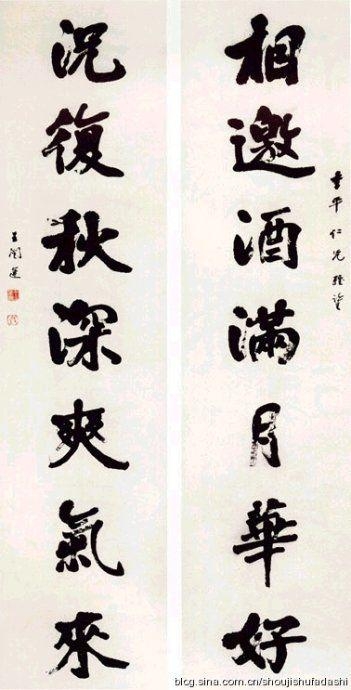 相邀酒滿月華好
季平仁兄雅鑒
況復秋深爽氣來
王闓運
blog.sina.com.cn/shoujishufadashi